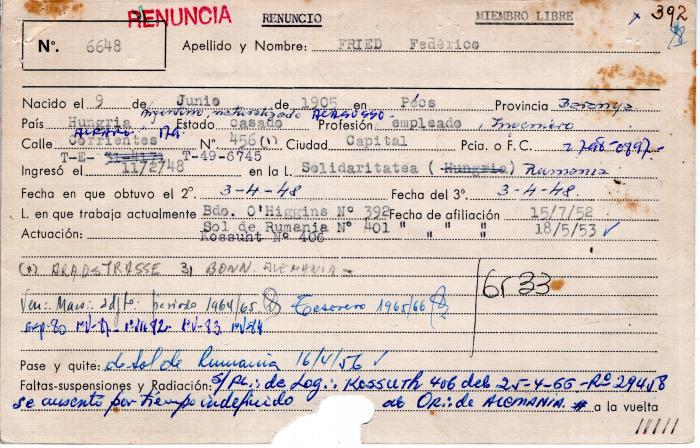 RENUNCIA RENUNCIO MIEMBRO LIBRE x 392
Nº. 6648 Apellido y Nombre: FRIED Federico
Nacido el 9 de Junio de 1905 en Pécs Provincia Baranya
argentino naturalizado
País Hungria Estado casado Profesión empleado, Ingeniero
Calle Corrientes Nº 456 (1) Ciudad Capital Pcia. o F. C.
T-E- 31-4171 T-49-6745
Ingresó el 11/2/48 en la L. Solidaritatea (Hungria) Rumania
Fecha en que obtuvo el 2º. 3-4-48 Fecha del 3º. 3-4-48.
L. en que trabaja actualmente Bdo. O'Higgins Nº 392 Fecha de afiliación 15/7/52
Actuación: Sol de Rumania Nº 401 " " " 18/5/53 ✓
Kossuht Nº 406
(1) ARADSTRASSE 31 BONN. ALEMANIA -
6533
Ven: Maes: periodo 1964/65 Tesorero 1965/66
MV-83
Pase y quite: de Sol de Rumania 16/4/56 ✓
Faltas-suspensiones y Radiación: S/Pl.: de Log.: Kossuth 406 del 25-4-66-Rº 29458
se ausento por tiempo indefinido al Or.: de ALEMANIA. # a la vuelta